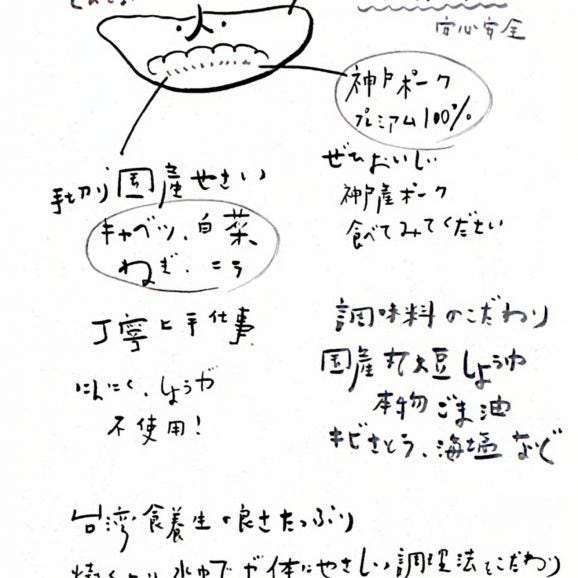 安心安全
神戸ポーク
プレミアム100%
ぜひおいしい
神戸産ポーク
食べてみてください
手切り国産やさい
キャベツ、白菜
ねぎ、ニラ
丁寧な手仕事
にんにく、しょうが
不使用!
調味料のこだわり
国産丸大豆しょうゆ
本物ごま油
キビさとう、海塩など
台湾食養生の良さたっぷり
焼くより水ゆでが体にやさしい調理法とこだわり